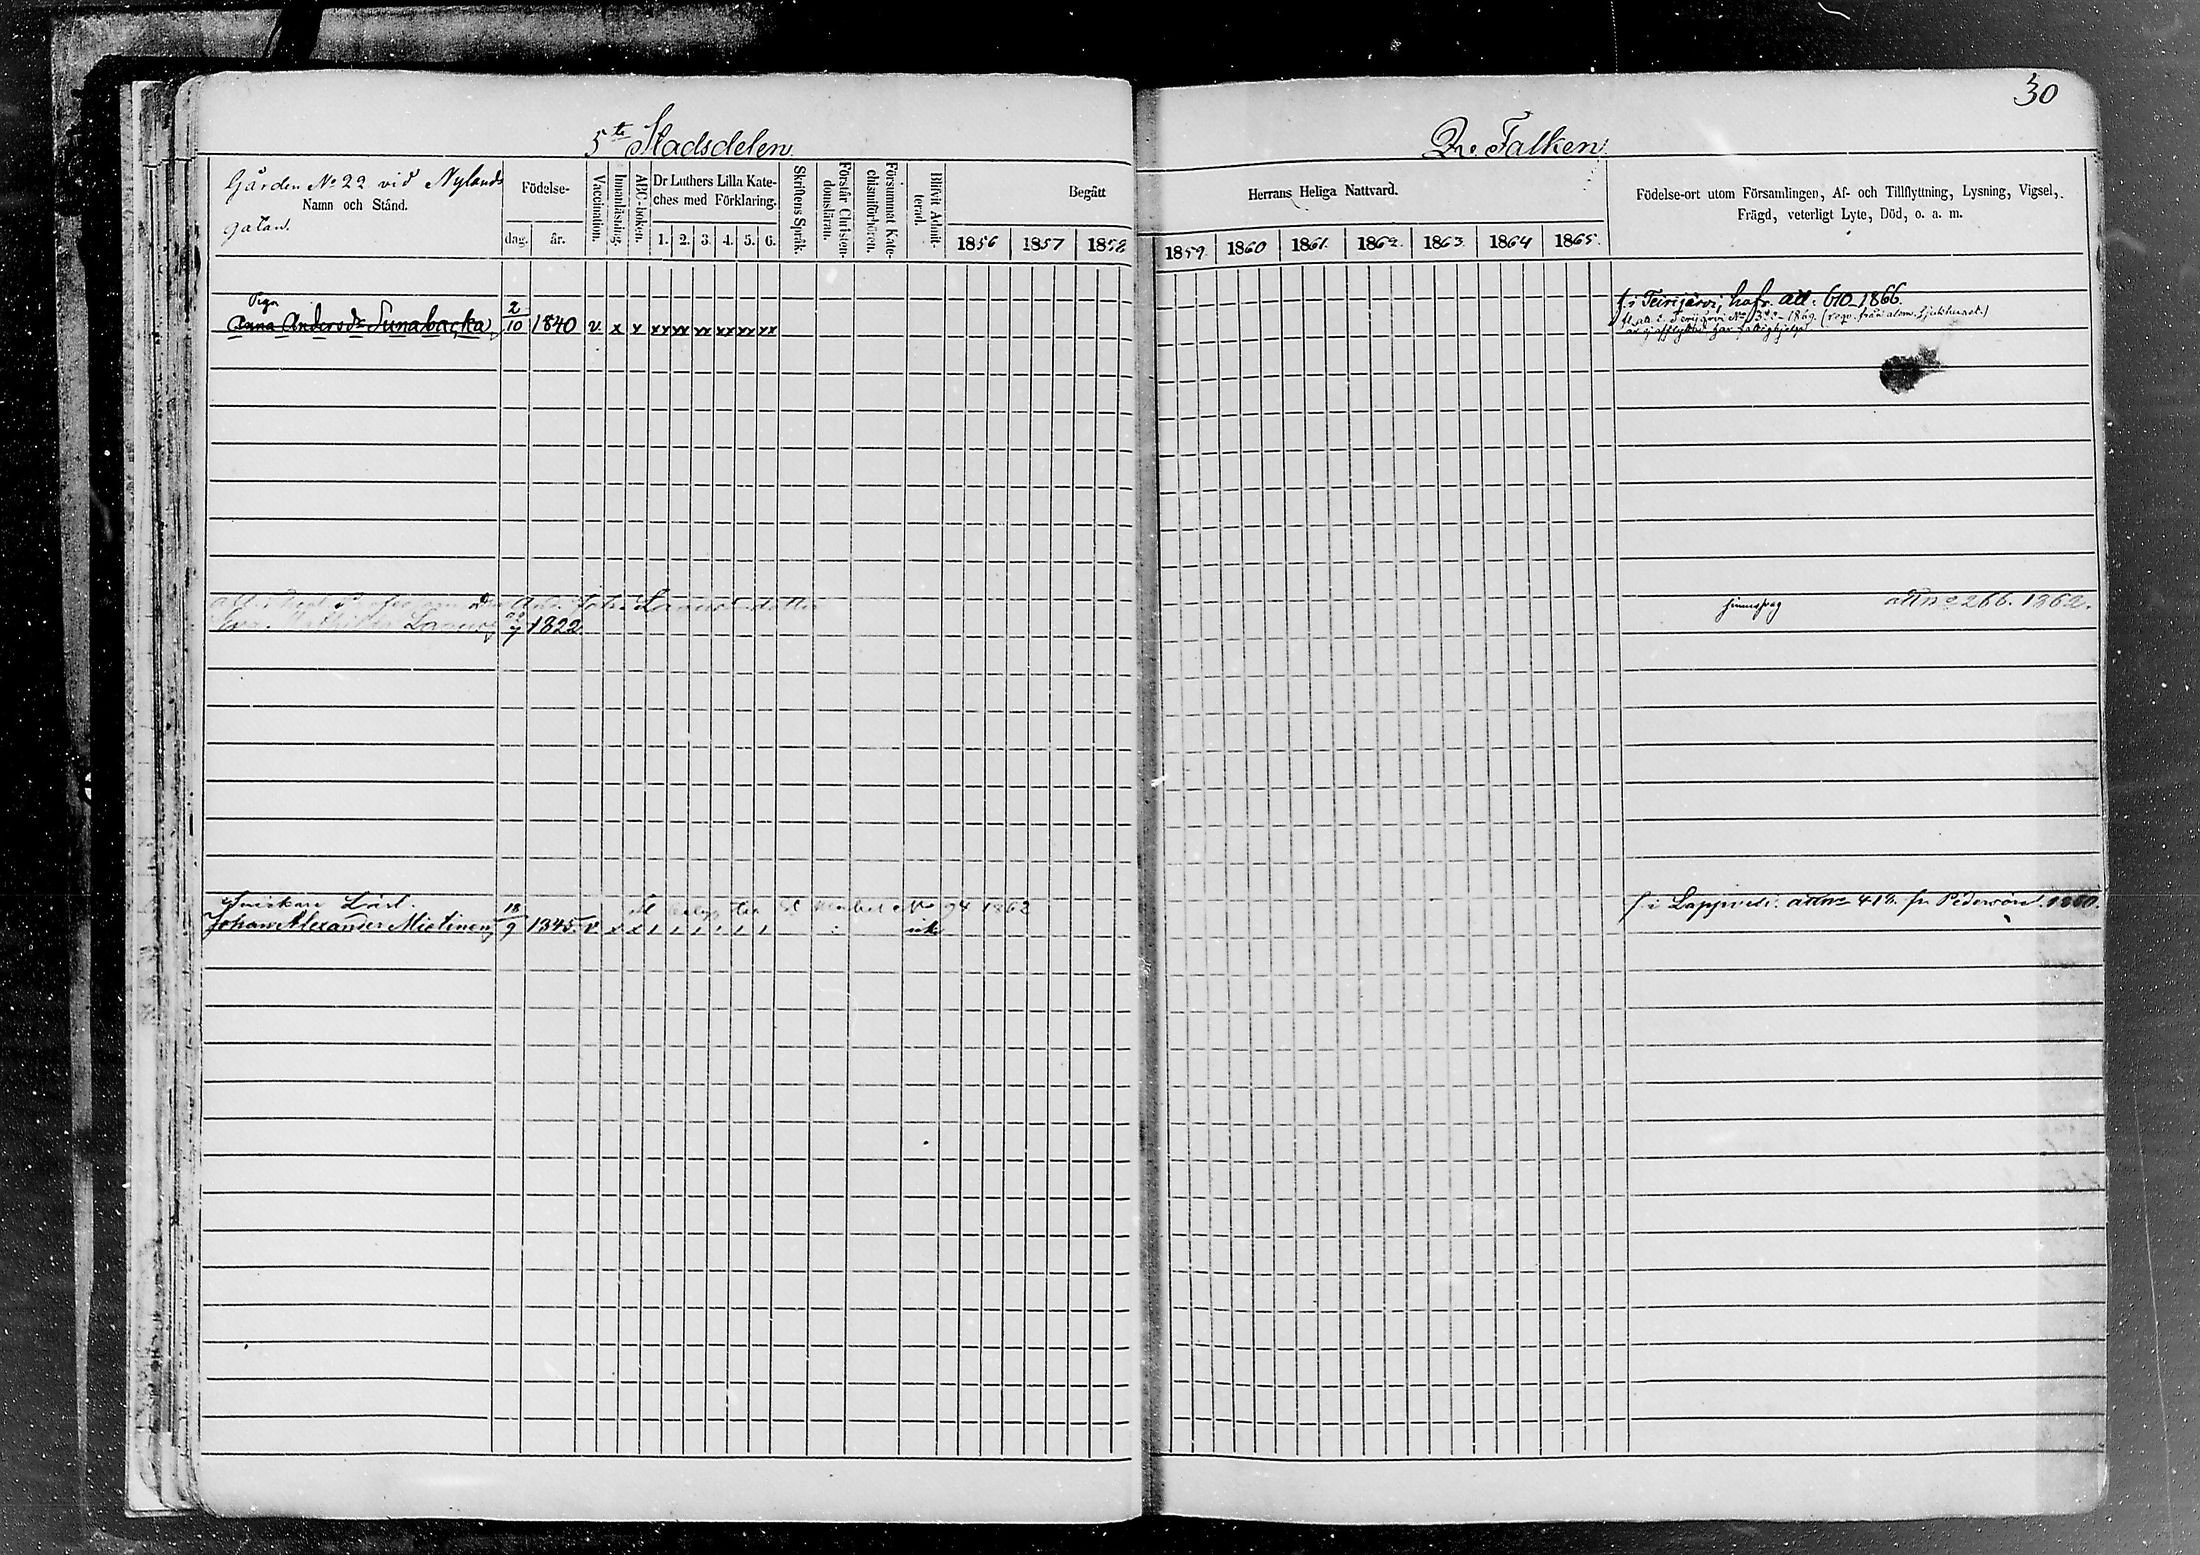 30
5te Stadsdelen.
Qr. Falken.
Gården No 22 vid Nylands
Namn och Stånd.
gatan.
Födelse-
dag. år.
Vaccination.
Innanläsning.
ABC-boken.
Dr Luthers Lilla Kate-
ches med Förklaring.
1. 2. 3. 4. 5. 6.
Skriftens Språk.
Förstår Christen-
domsläran.
Försummat Kate-
chismiförhören.
Blifvit Admit-
terad.
Begått
1856 1857 1858
Herrans Heliga Nattvard.
1859. 1860 1861. 1862. 1863. 1864 1865.
Födelse-ort utom Församlingen, Af- och Tillflyttning, Lysning, Vigsel,
Frägd, veterligt Lyte, Död, o. a. m.
Piga
Anna Andersdr Sunabacka, 2/10 1840 v. x v xx xx xx xx xx xx
f. i Terijärvi, att. 610-1866.
1822
att no 266. 1862.
Johan Alexander Mietinen, 18/9 1845. v. x x
No 94 1862
f. i Lappvesi. att no 419. fr. Pedersöre